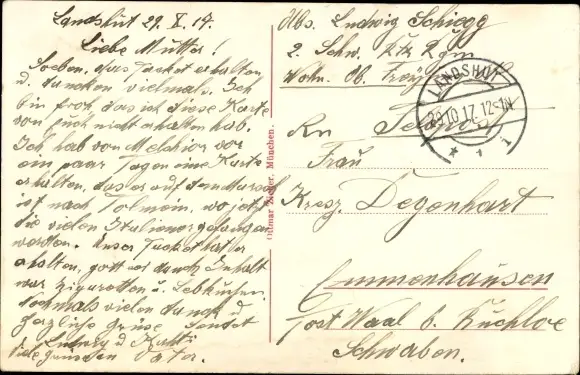 Landshut 29. X. 17.
Liebe Mutter!
Soeben das Packet erhalten
u. danken vielmals. Ich
bin froh das ich diese Karte
von euch nicht erhalten hab.
Ich hab von Melchior vor
ein paar Tagen eine Karte
erhalten, das er auf dem Marsch
ist nach Tolmein, wo jetzt
die vielen Italiener gefangen
worden. Unser Packet hat er
erhalten,
war Zigaretten u. Lebkuchen.
Nochmals vielen Dank u.
herzliche Grüße sendet
Ludwig u. Kathi
viele Grüße an Vater.
Ottmar Zieher, München.
Abs. Ludwig Schiegg
2. Schw. Rtr. Rgm.
LANDSHUT
29.10.17. 12-1N
1
An
Frau
Kresz. Degenhart
Emmenhausen
Post Waal b. Buchloe
Schwaben.